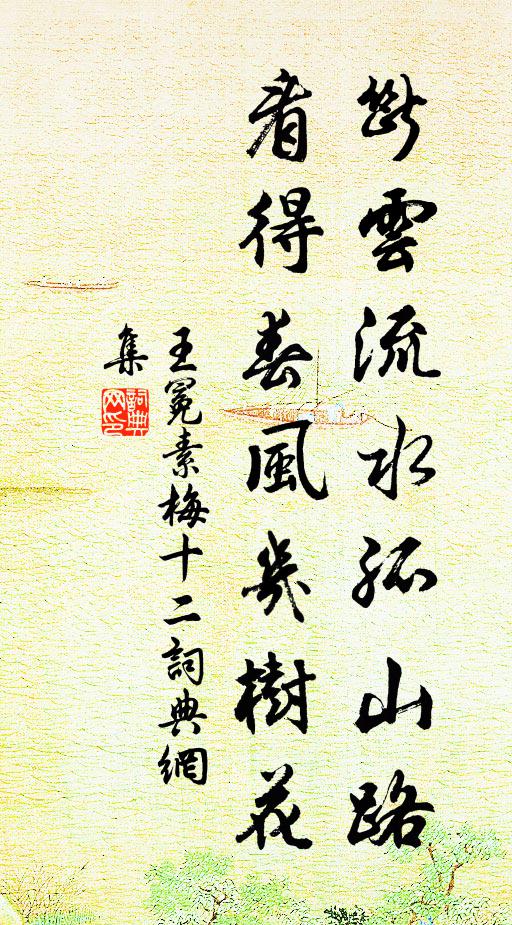 斷雲流水孤山路
看得春風幾樹花
王冕素梅十二詞典網
集
詞典網印